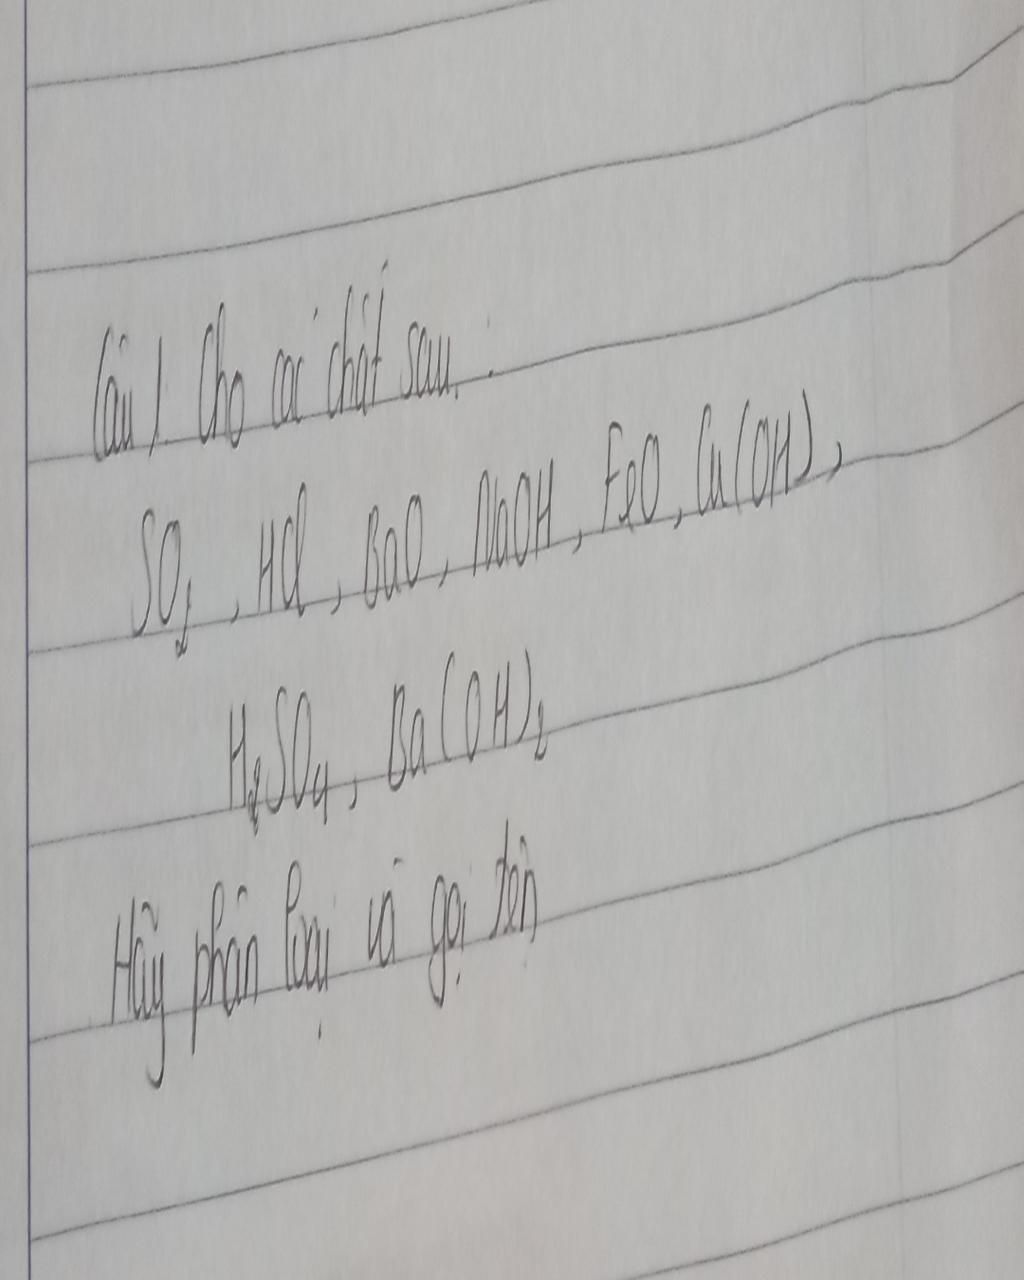 Câu 1. Cho các chất sau :
SO₂, HCl, BaO, NaOH, FeO, Cu(OH),
H₂SO₄, Ba(OH)₂
Hãy phân loại và gọi tên